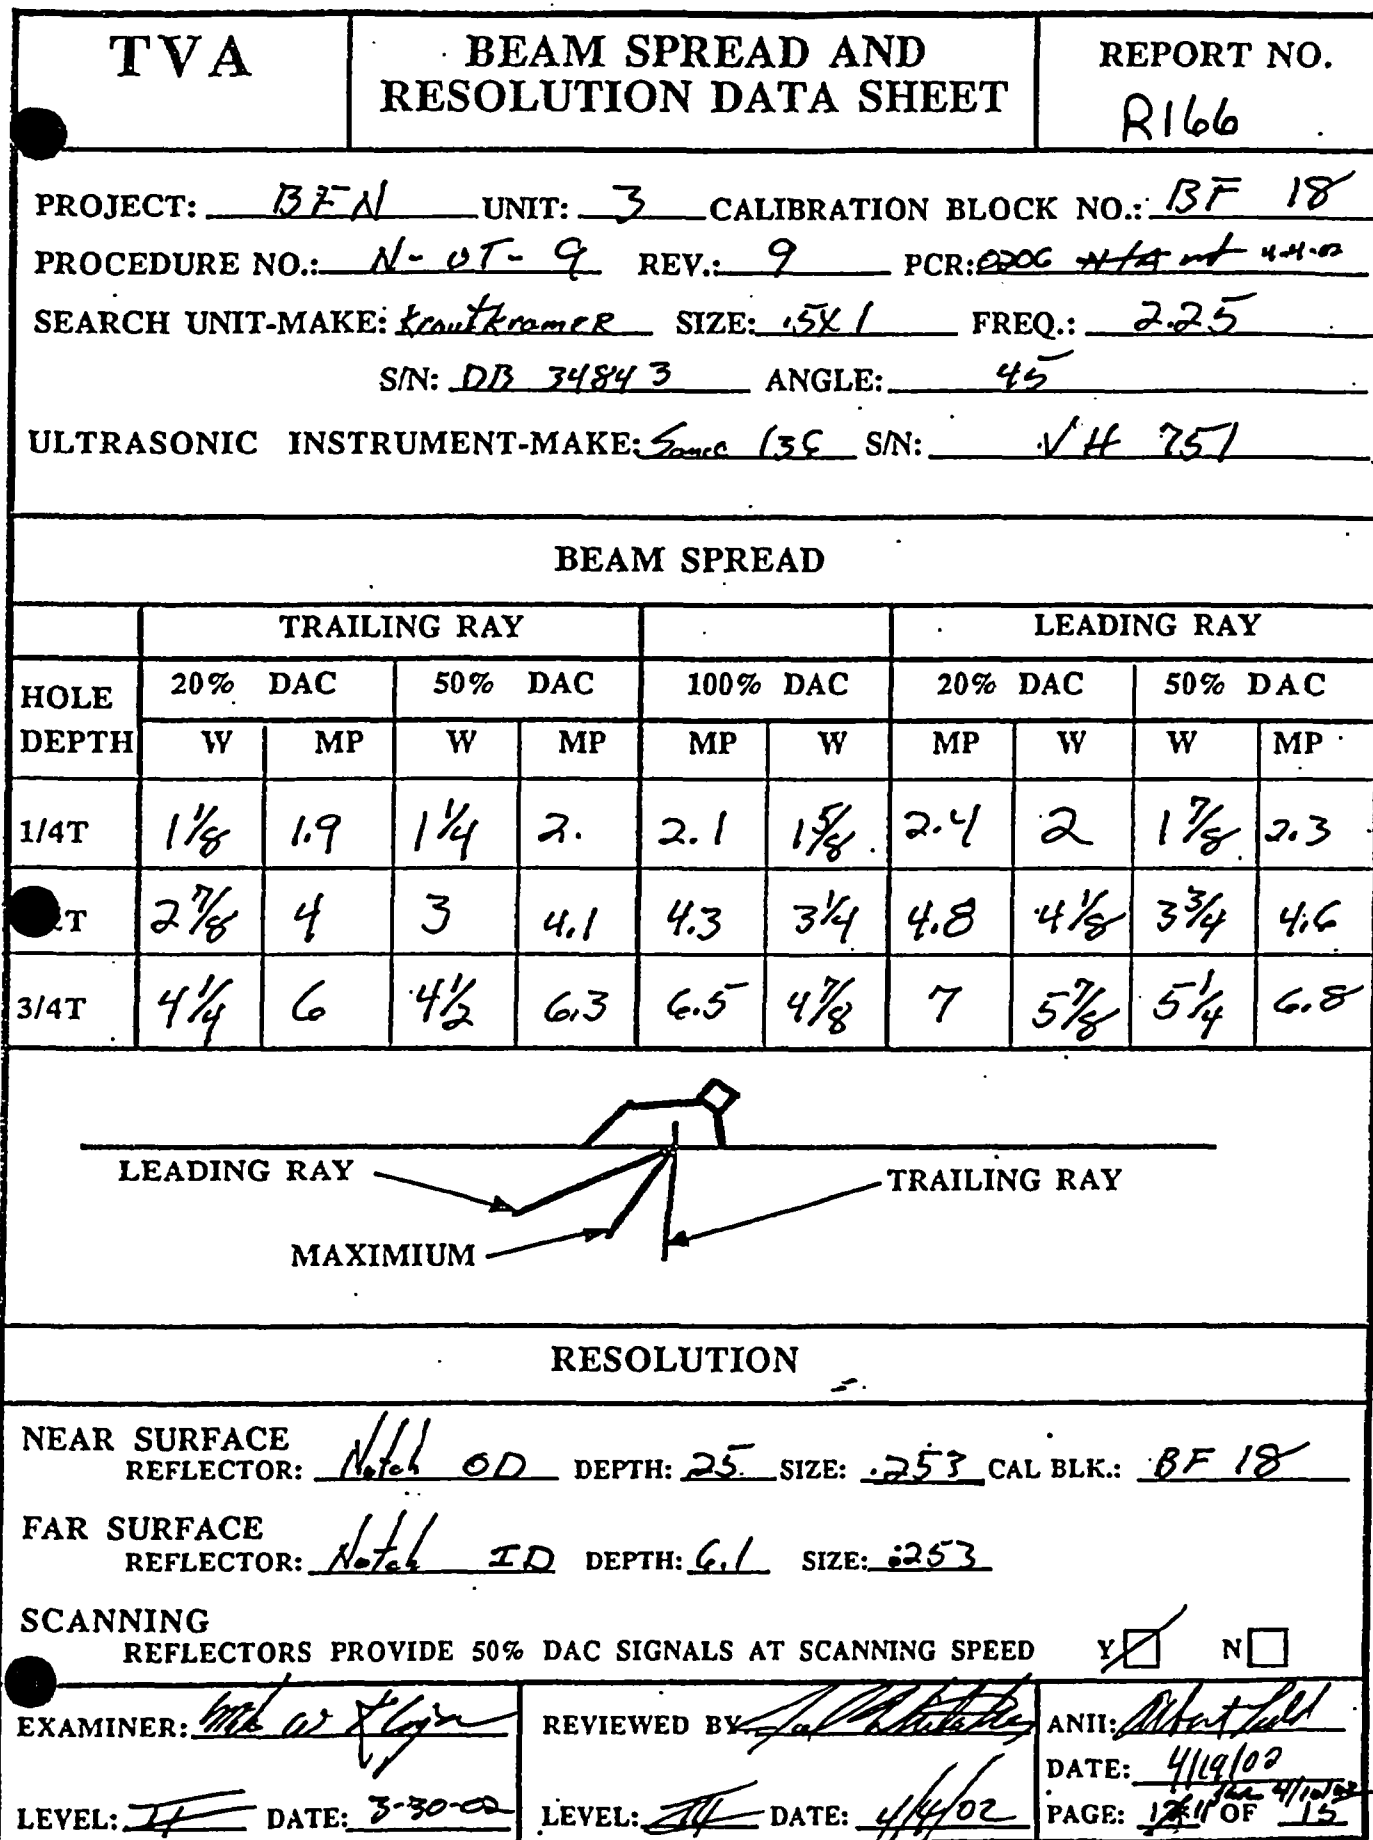 TVA BEAM SPREAD AND RESOLUTION DATA SHEET REPORT NO. R166
PROJECT: BFN UNIT: 3 CALIBRATION BLOCK NO.: BF 18
PROCEDURE NO.: N-UT-9 REV.: 9 PCR: 0206 N/A 4-4-02
SEARCH UNIT-MAKE: KrautkrameR SIZE: .5X1 FREQ.: 2.25
S/N: DB 34843 ANGLE: 45
ULTRASONIC INSTRUMENT-MAKE: Sonic 136 S/N: VH 751
BEAM SPREAD
TRAILING RAY LEADING RAY
HOLE DEPTH 20% DAC 50% DAC 100% DAC 20% DAC 50% DAC
W MP W MP MP W MP W W MP
1/4T 1 1/8 1.9 1 1/4 2. 2.1 1 5/8 2.4 2 1 7/8 2.3
2T 2 7/8 4 3 4.1 4.3 3 1/4 4.8 4 1/8 3 3/4 4.6
3/4T 4 1/4 6 4 1/2 6.3 6.5 4 7/8 7 5 7/8 5 1/4 6.8
LEADING RAY
TRAILING RAY
MAXIMIUM
RESOLUTION
NEAR SURFACE
REFLECTOR: Notch OD DEPTH: 25. SIZE: .253 CAL BLK.: BF 18
FAR SURFACE
REFLECTOR: Notch ID DEPTH: 6.1 SIZE: .253
SCANNING
REFLECTORS PROVIDE 50% DAC SIGNALS AT SCANNING SPEED Y N
EXAMINER: REVIEWED BY ANII:
DATE: 4/19/02
LEVEL: II DATE: 3-30-02 LEVEL: III DATE: 4/4/02 PAGE: 11 OF 15